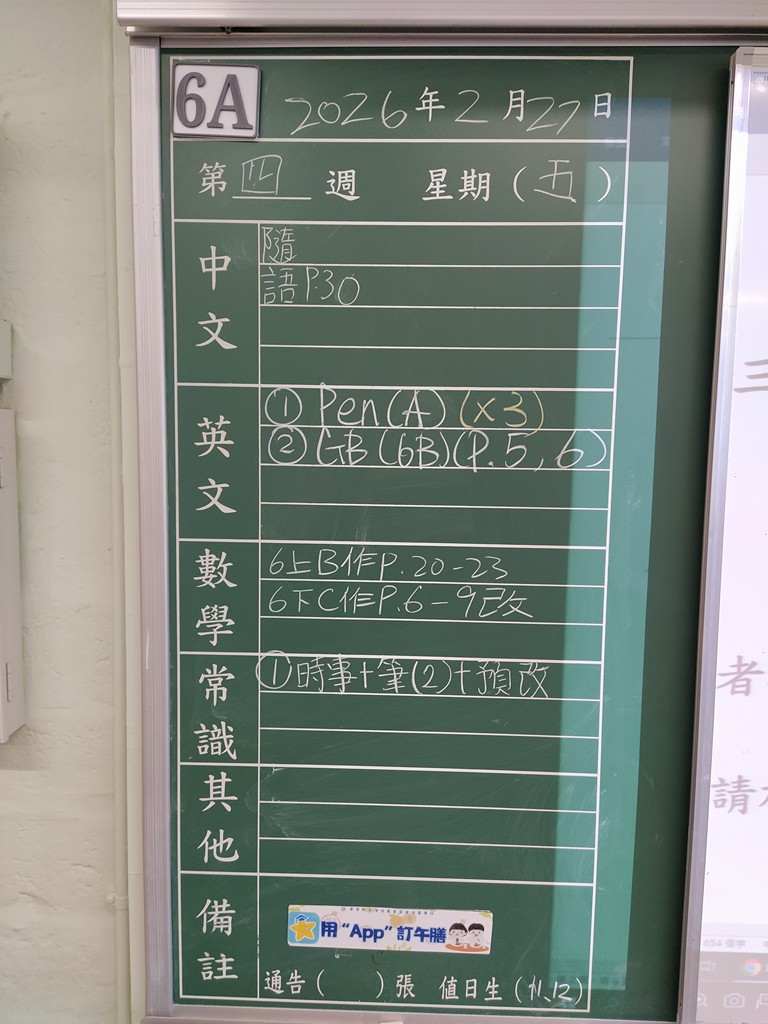 6A
2026年2月27日
第四週 星期(五)
中文
隨
語P.30
英文
① Pen(A) (x3)
② GB(6B)(P.5,6)
數學
6上B作P.20-23
6下C作P.6-9改
常識
①時事+筆(2)+預改
其他
備註
用“App”訂午膳
通告( )張 值日生(11、12)
三
者
請